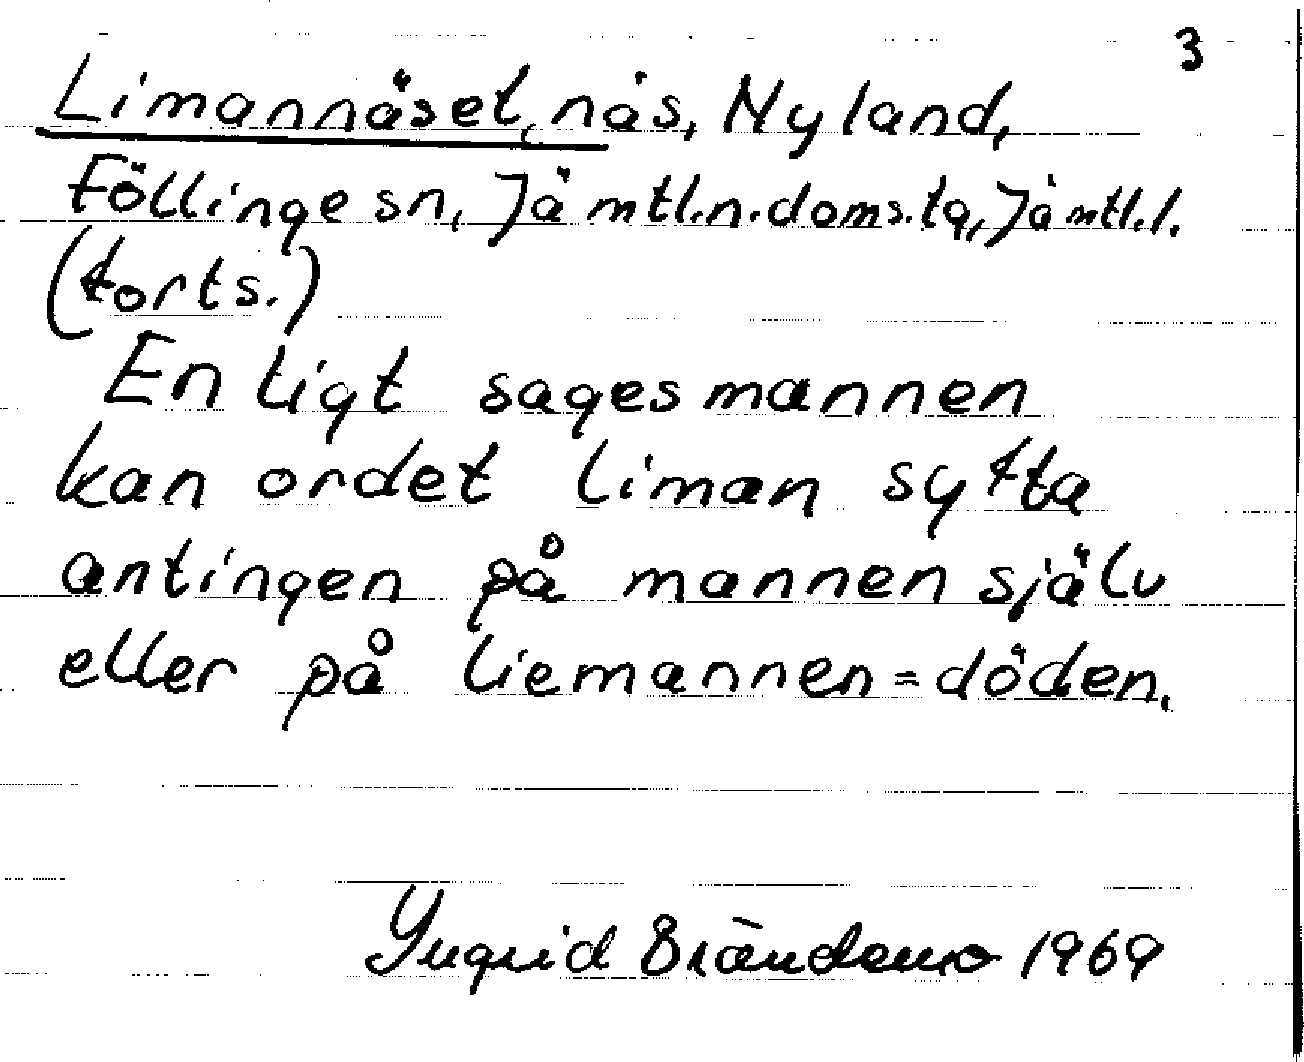 3
Limannäset, näs, Nyland,
Föllinge sn, Jämtl.n.doms.tg, Jämtl.l.
(forts.)
Enligt sagesmannen
kan ordet liman syfta
antingen på mannen själv
eller på liemannen = döden.
Yngrid Brändemo 1969